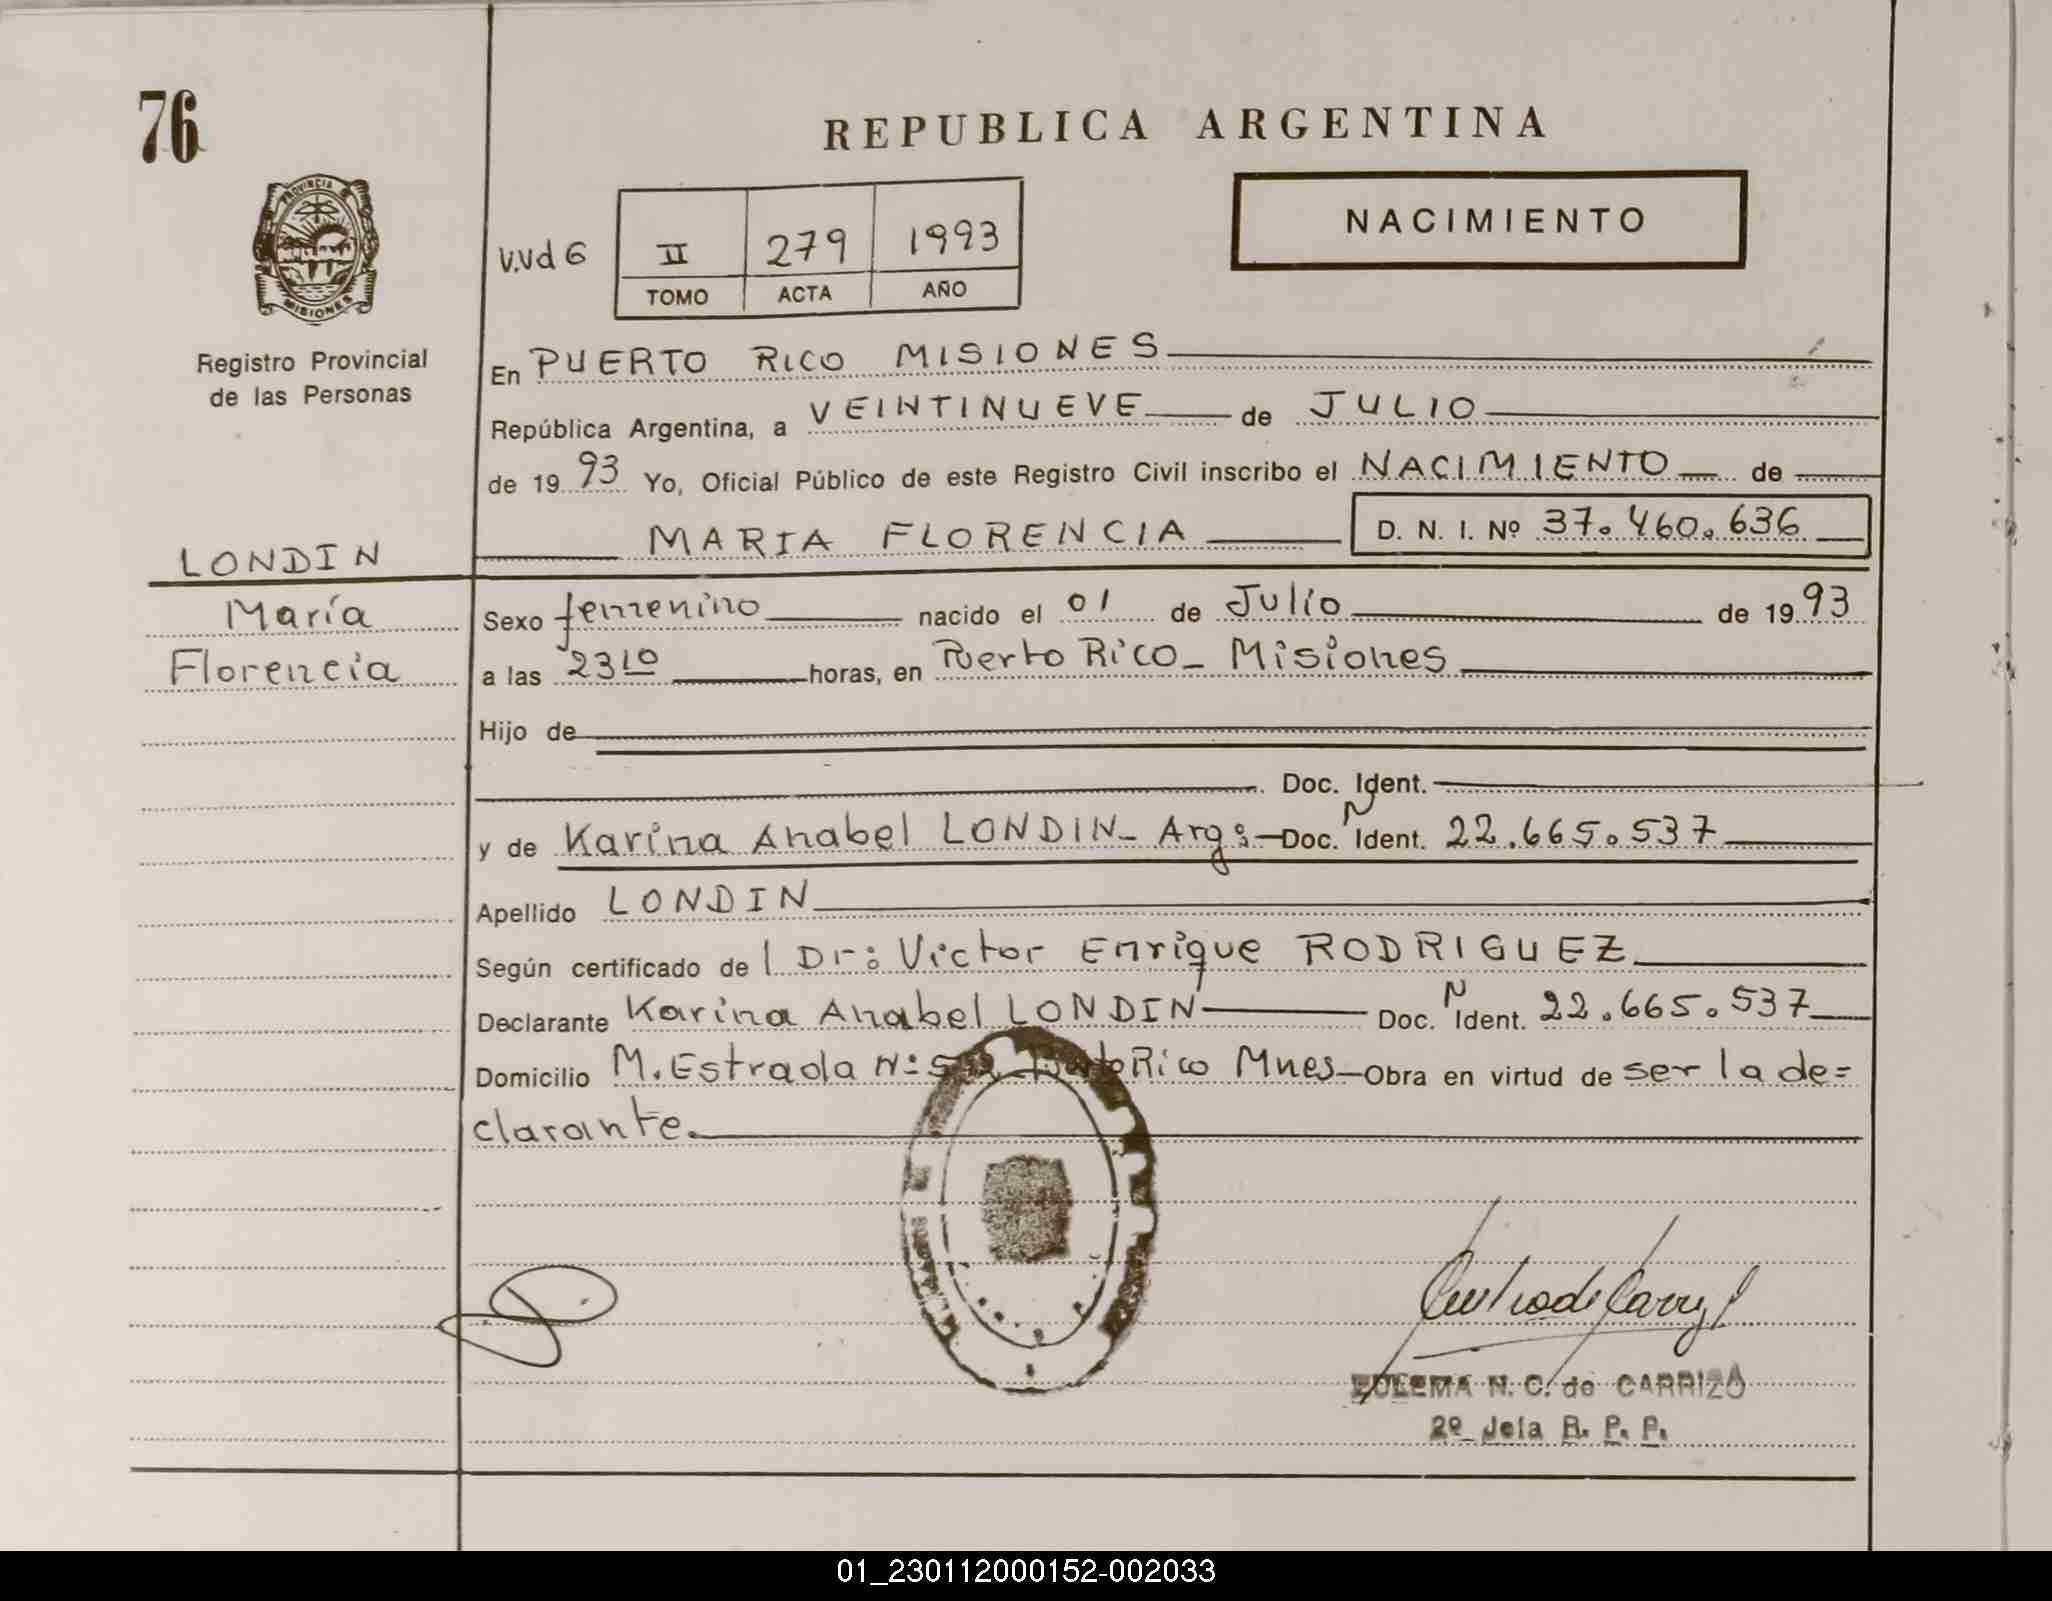 76
REPUBLICA ARGENTINA
PROVINCIA
MISIONES
Registro Provincial
de las Personas
V.Vd 6
II 279 1993
TOMO ACTA AÑO
NACIMIENTO
En PUERTO RICO MISIONES
República Argentina, a VEINTINUEVE de JULIO
de 1993 Yo, Oficial Público de este Registro Civil inscribo el NACIMIENTO de
MARIA FLORENCIA D. N. I. Nº 37.460.636
LONDIN
María
Florencia
Sexo femenino nacido el 01 de Julio de 1993
a las 2310 horas, en Puerto Rico - Misiones
Hijo de
Doc. Ident.
y de Karina Anabel LONDIN - Arg: Doc. N Ident. 22.665.537
Apellido LONDIN
Según certificado de l Dr: Victor Enrique RODRIGUEZ
Declarante Karina Anabel LONDIN Doc. N Ident. 22.665.537
Domicilio M. Estrada Nº Rico Mnes - Obra en virtud de ser la de=
clarante.
ZULEMA N. C. de CARRIZO
2º Jefa R. P. P.
01_230112000152-002033